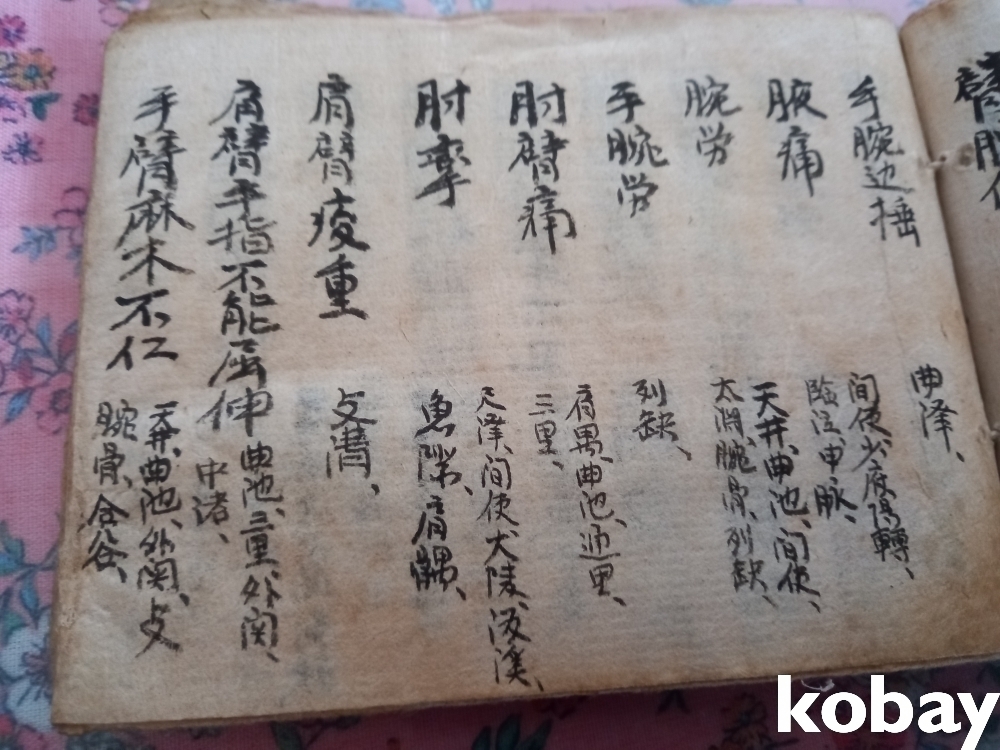 手腕边捶
曲泽、
腋痛
间使、少府、阳轉、
临泣、申脈、
腕労
天井、曲池、间使、
太渊、腕骨、列缺、
手腕労
列缺、
肘臂痛
肩禺、曲池、通里、
三里、
肘挛
尺泽、间使、大陵、后溪、
魚際、肩髃、
肩臂痠重
支溝、
肩臂手指不能屈伸
曲池、三里、外関、
中渚、
手臂麻木不仁
天井、曲池、外関、支
腕骨、合谷、
臂腕
kobay